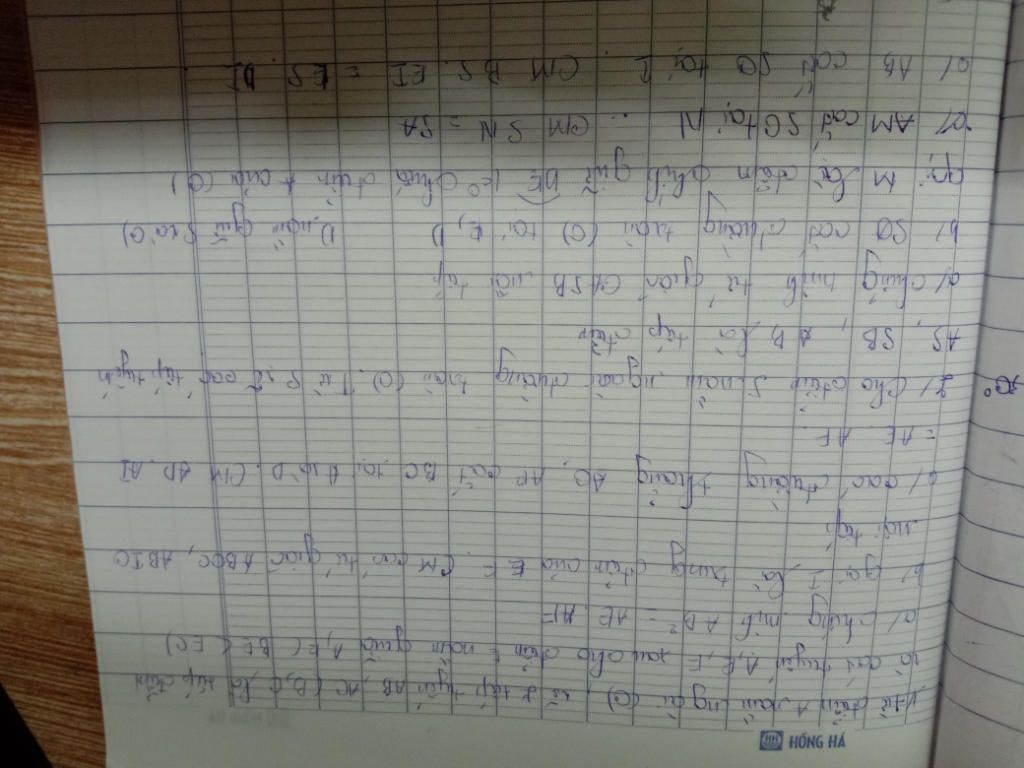 HH HỒNG HÀ
1/ từ điểm A nằm ngoài (O), vẽ 2 tiếp tuyến AB, AC (B, C là tiếp điểm
vẽ cát tuyến A, E, F sao cho điểm E nằm giữa A, F (BE < EC)
a/ chứng minh AB² = AE. AF
b/ gọi I là trung điểm của EF. CM các tứ giác ABOC, ABIO
nội tiếp
c/ các đường thẳng AO, AF cắt BC tại và D. CM AD. AI
= AE. AF.
2/ Cho điểm S nằm ngoài đường tròn (O). Từ S vẽ các tiếp tuyến
AS, SB, A B là tiếp điểm
a/ chứng minh tứ giác OASB nội tiếp
b/ SO cắt đường tròn (O) tại E, D D nằm giữa S và O)
gọi M là điểm chính giữa DE ko chứa điểm A của (O)
c/ AM cắt SO tại N. CM SN = SA
d/ AB cắt SO tại I. CM BS. EI = ES. DI.